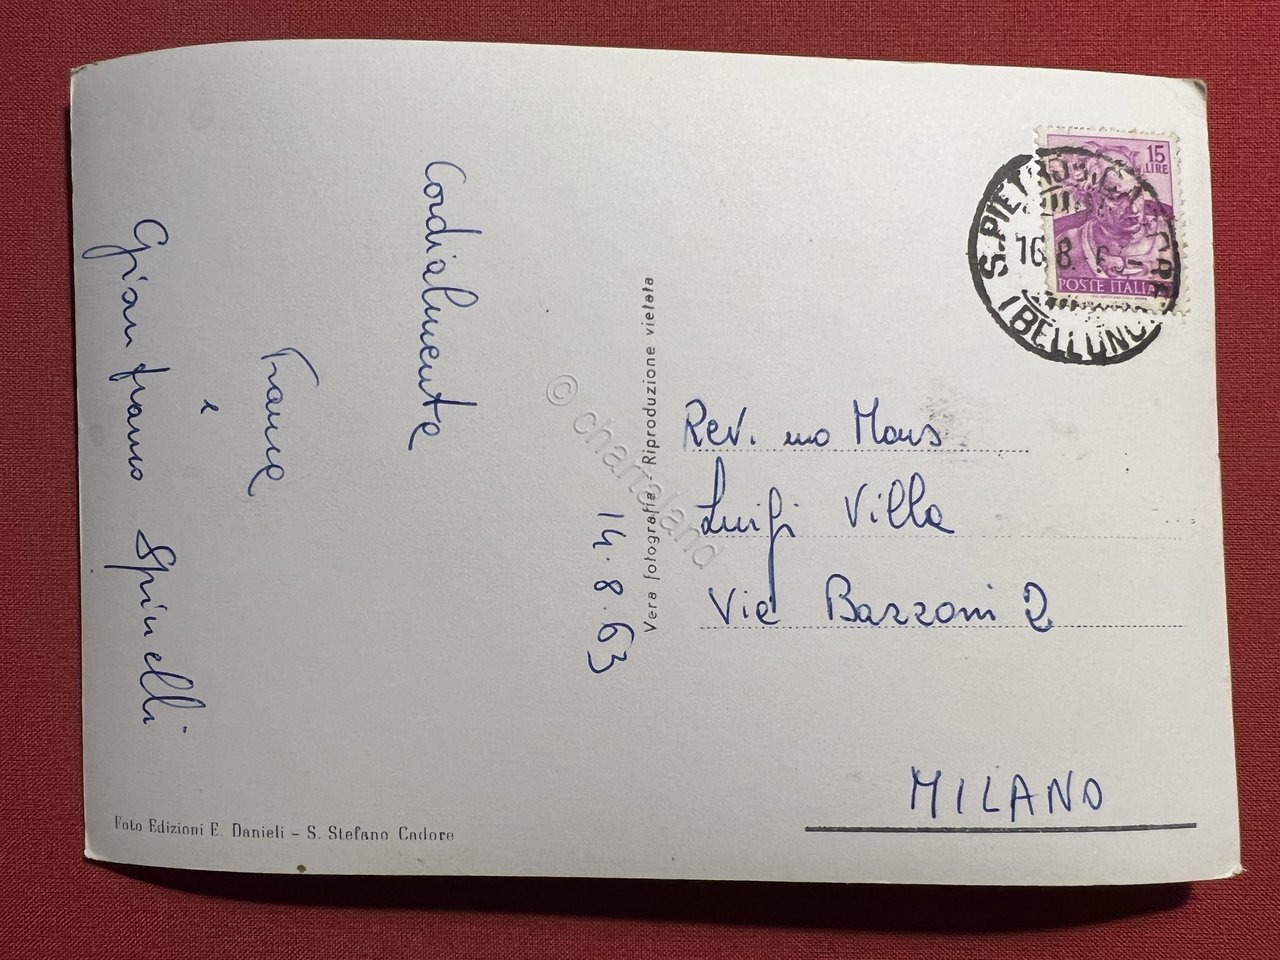 14.8.63
Cordialmente
Franca
e
Gianfranco Spinelli
Vera fotografia - Riproduzione vietata
Foto Edizioni E. Danieli - S. Stefano Cadore
15
LIRE
POSTE ITALIA
S. PIETRO DI CADORE
16.8.63
(BELLUNO)
Rev. mo Mons.
Luigi Villa
Via Bazzoni 2
MILANO
© chartaland